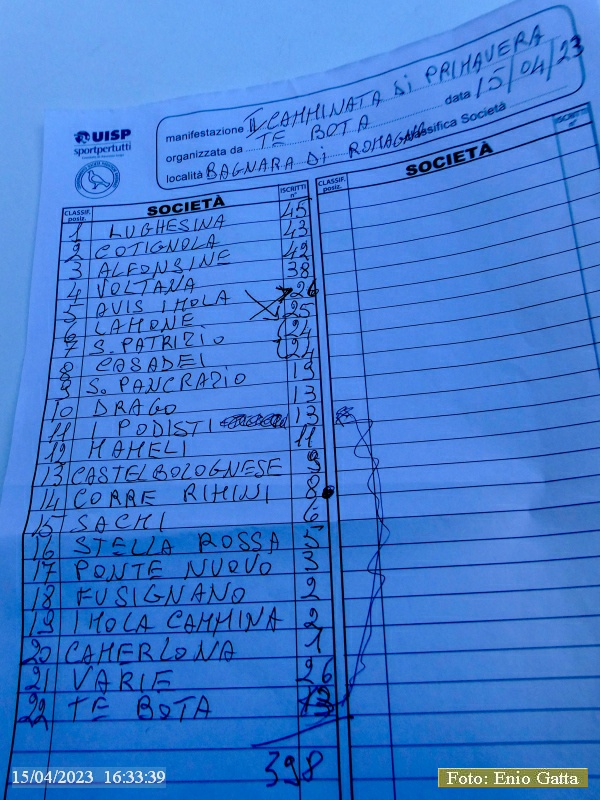 UISP
sportpertutti
manifestazione II CAMMINATA DI PRIMAVERA
organizzata da TE BOTA data 15/04/23
località BAGNARA DI ROMAGNA Classifica Società
CLASSIF. posiz. SOCIETÀ ISCRITTI n°
1 LUGHESINA 45
2 COTIGNOLA 43
3 ALFONSINE 42
4 VOLTANA 38
5 AVIS IMOLA 26
6 LAMONE 25
7 S. PATRIZIO 24
8 CASADEI 24
9 S. PANCRAZIO 19
10 DRAGO 13
11 I PODISTI 13
12 MAMELI 11
13 CASTELBOLOGNESE 9
14 CORRE RIMINI 8
15 SACHI 6
16 STELLA ROSSA 5
17 PONTE NUOVO 3
18 FUSIGNANO 2
19 IMOLA CAMMINA 2
20 CAMERLONA 1
21 VARIE 26
22 TE BOTA 13
398
CLASSIF. posiz. SOCIETÀ ISCRITTI n°
15/04/2023 16:33:39
Foto: Enio Gatta